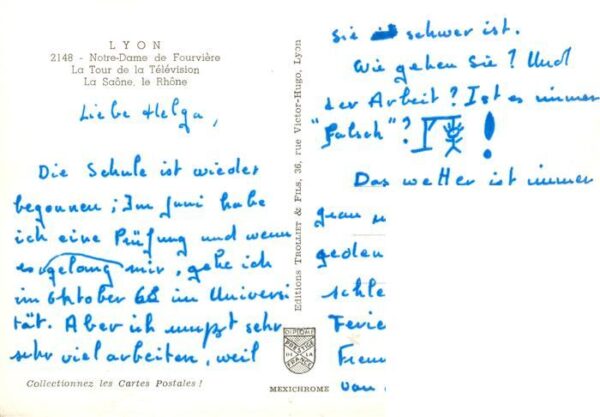 LYON
2148 - Notre-Dame de Fourvière
La Tour de la Télévision
La Saône, le Rhône
Liebe Helga,
Die Schule ist wieder
begonnen ; Im Juni habe
ich eine Prüfung und wenn
es gelang mir, gehe ich
im Oktober 62 im Universi
tät. Aber ich mußt sehr
sehr viel arbeiten, weil
Collectionnez les Cartes Postales !
Editions TROLLIET & FILS, 36, rue Victor-Hugo, Lyon
DIPLOME
PRESTIGE
DE LA
FRANCE
MEXICHROME
sie schwer ist.
Wie gehen Sie ? Und
der Arbeit ? Ist es immer
"falsch" ? !
Das wetter ist immer
grau
geden
schle
Ferie
Freun
von